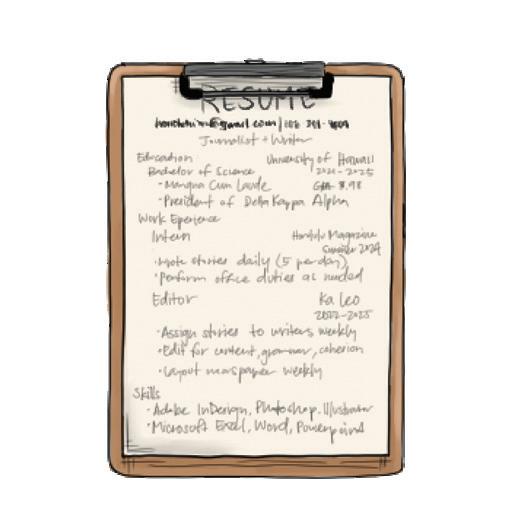 RESUME
@gmail.com |
Journalist + Writer
Education University of Hawaii
Bachelor of Science 2021-2025
• Mangna Cum Laude GPA 3.98
• President of Delta Kappa Alpha
Work Eperience
Intern Honolulu Magazine
Summer 2024
• Wrote stories daily (5 per day)
• Perform office duties as needed
Editor Ka Leo
2022-2025
• Assign stories to writers weekly
• Edit for content, grammar, cohesion
• Layout newspaper weekly
Skills
• Adobe InDesign, Photoshop, Illustrator
• Microsoft Excel, Word, Powerpoint